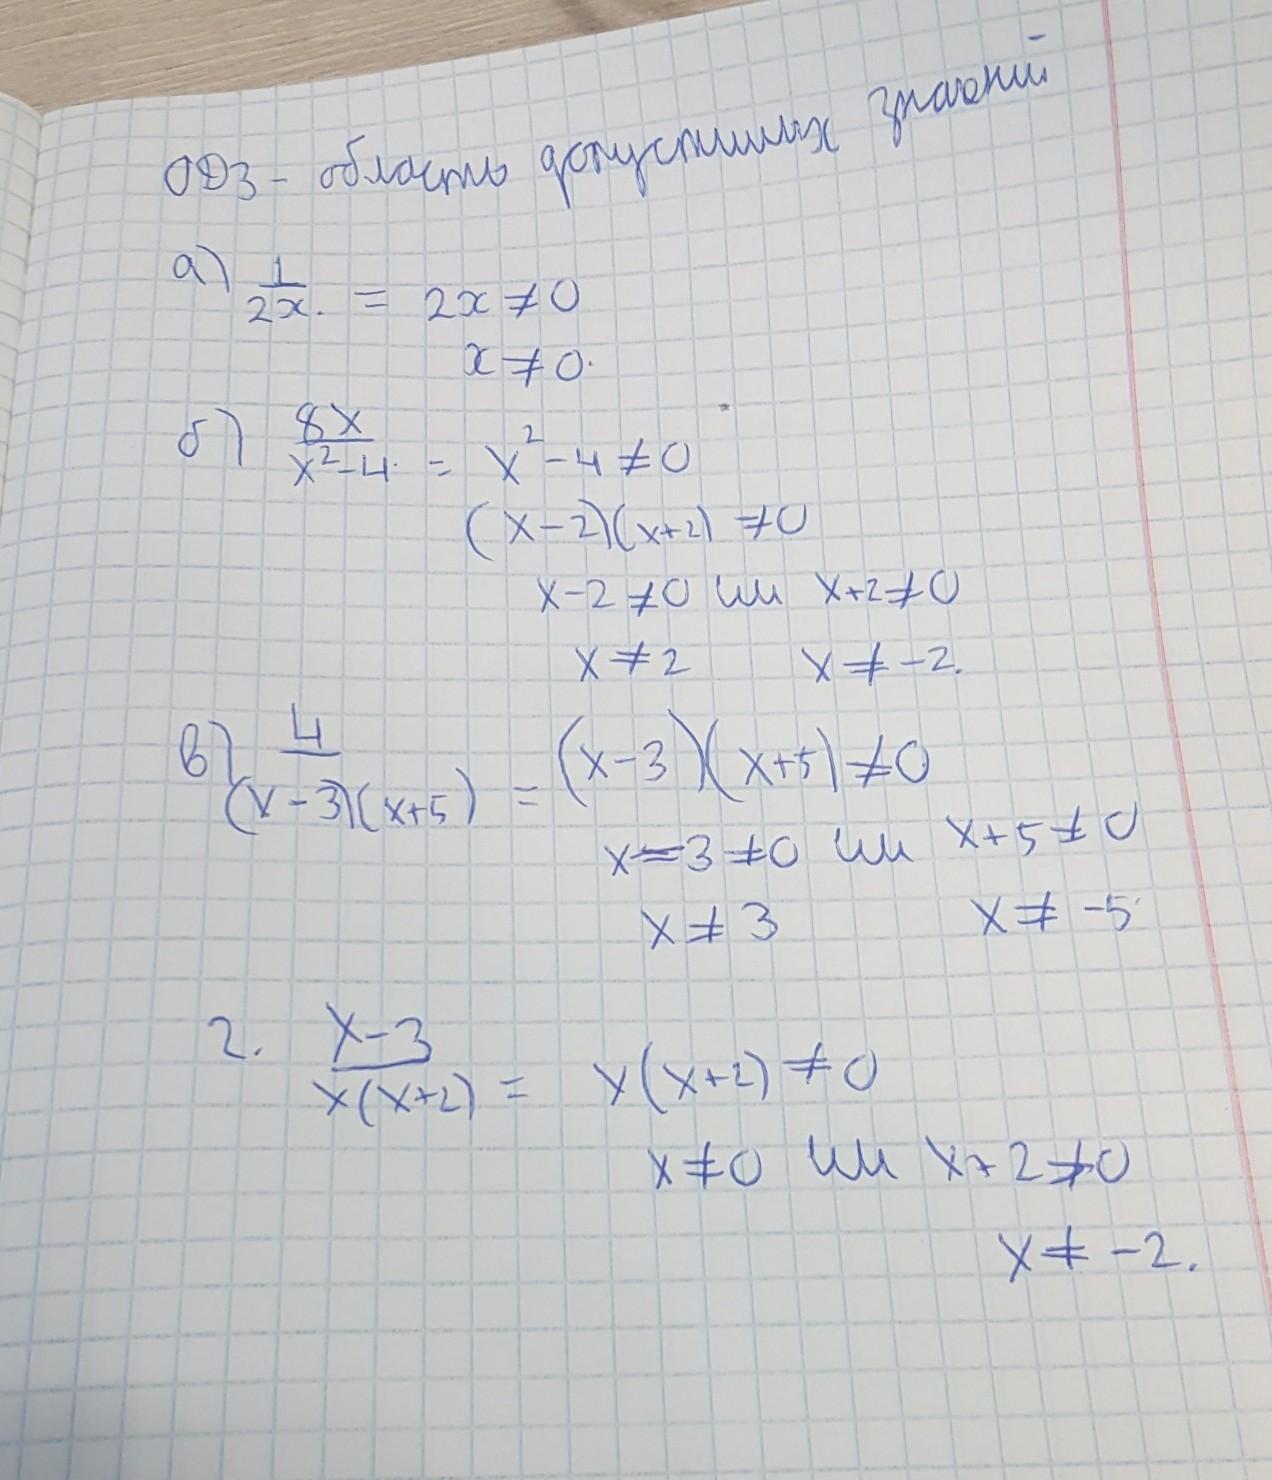 ОДЗ - область допустимых значений
а) 1/2x. = 2x ≠ 0
x ≠ 0.
б) 8x/x²-4. = x² - 4 ≠ 0
(x-2)(x+2) ≠ 0
x-2 ≠ 0 или x+2 ≠ 0
x ≠ 2 x ≠ -2.
в) 4/(x-3)(x+5) = (x-3)(x+5) ≠ 0
x-3 ≠ 0 или x+5 ≠ 0
x ≠ 3 x ≠ -5
2. x-3/x(x+2) = x(x+2) ≠ 0
x ≠ 0 или x+2 ≠ 0
x ≠ -2.